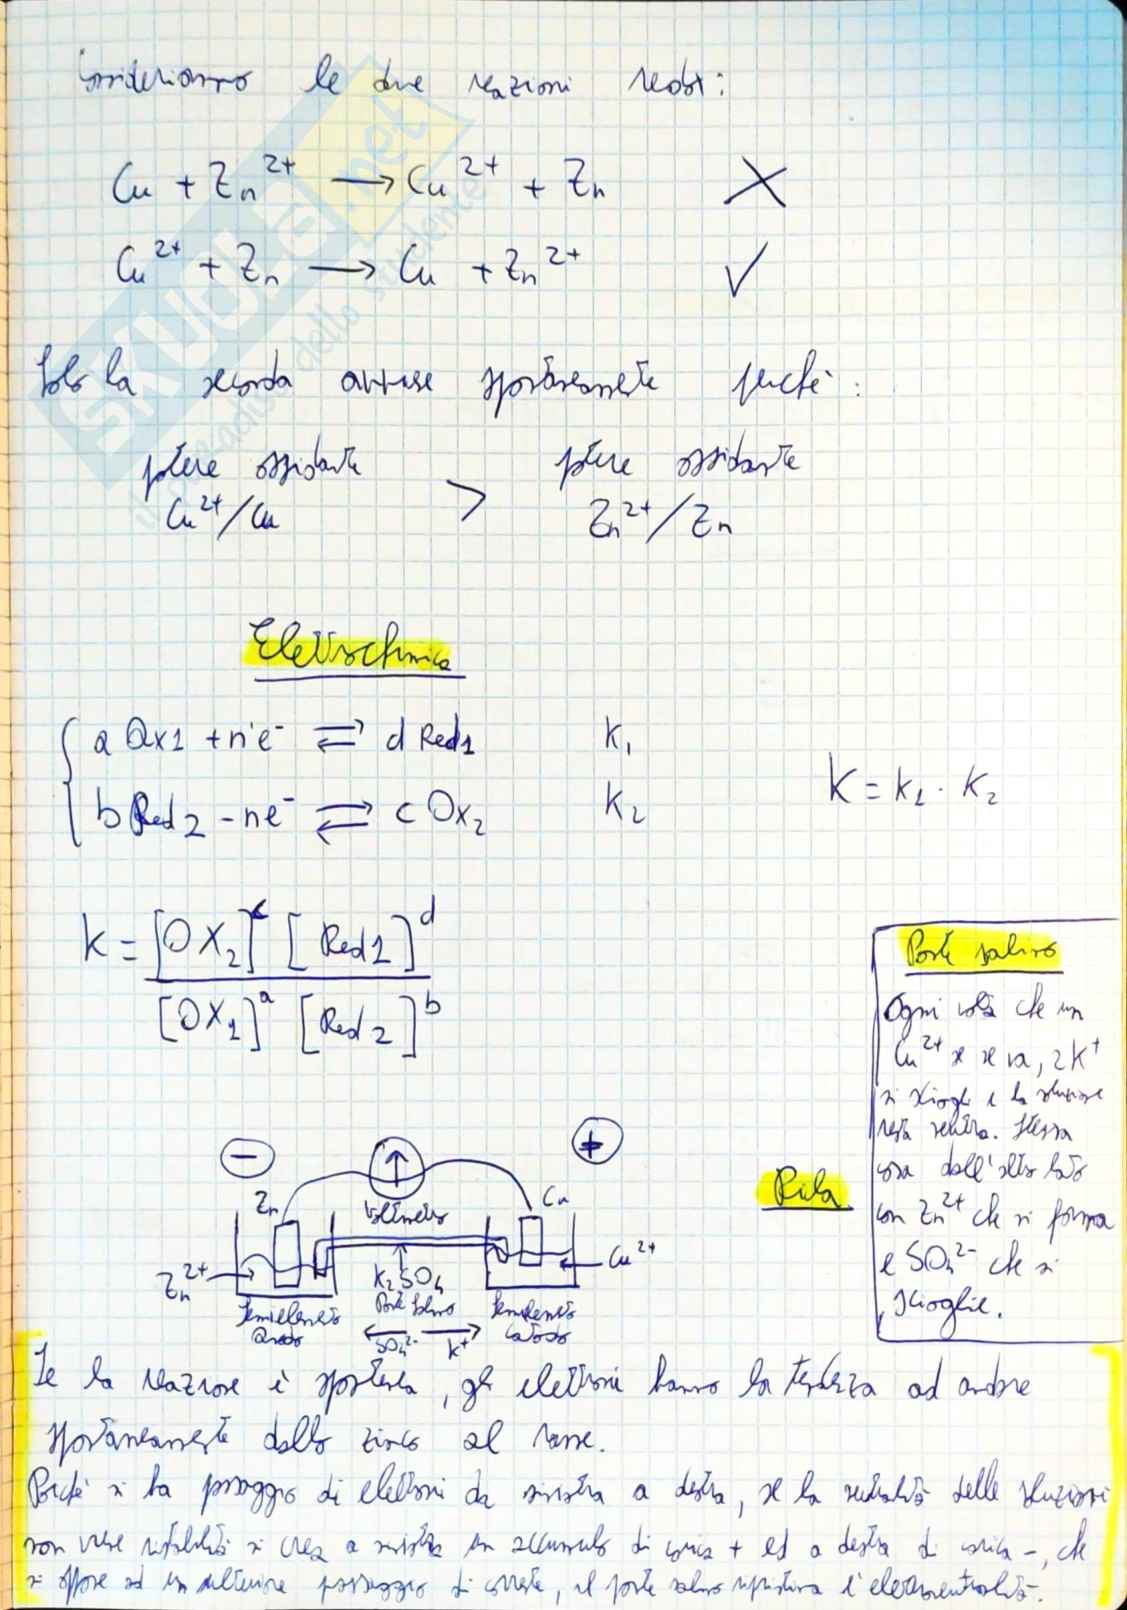 Consideriamo le due reazioni redox:
Cu + Zn²⁺ → Cu²⁺ + Zn ✗
Cu²⁺ + Zn → Cu + Zn²⁺ ✓
Solo la seconda avviene spontaneamente perché:
potere ossidante > potere ossidante
Cu²⁺/Cu Zn²⁺/Zn
Elettrochimica
a Ox1 + n e⁻ ⇄ d Red1 K₁
b Red2 - n e⁻ ⇄ c Ox₂ K₂
K = K₁ · K₂
K = [OX₂]ᶜ [Red1]ᵈ
[OX₁]ᵃ [Red2]ᵇ
Ponte salino
Ogni volta che un
Cu²⁺ se ne va, 2K⁺
si scioglie e la soluzione
resta neutra. Stessa
cosa dall'altro lato
con Zn²⁺ che si forma
e SO₄²⁻ che si
scioglie.
Pila
− +
Zn Voltmetro Cu
Zn²⁺ Cu²⁺
K₂SO₄
Ponte Salino
Semielemento Semielemento
Anodo Catodo
SO₄²⁻ K⁺
Se la reazione è spontanea, gli elettroni hanno la tendenza ad andare
spontaneamente dallo zinco al rame.
Poiché si ha passaggio di elettroni da sinistra a destra, se la neutralità delle soluzioni
non viene ristabilita si crea a sinistra un accumulo di carica + ed a destra di carica -, che
si oppone ad un ulteriore passaggio di corrente, il ponte salino ripristina l'elettroneutralità.
SKUOLA.net
il paradiso dello studente